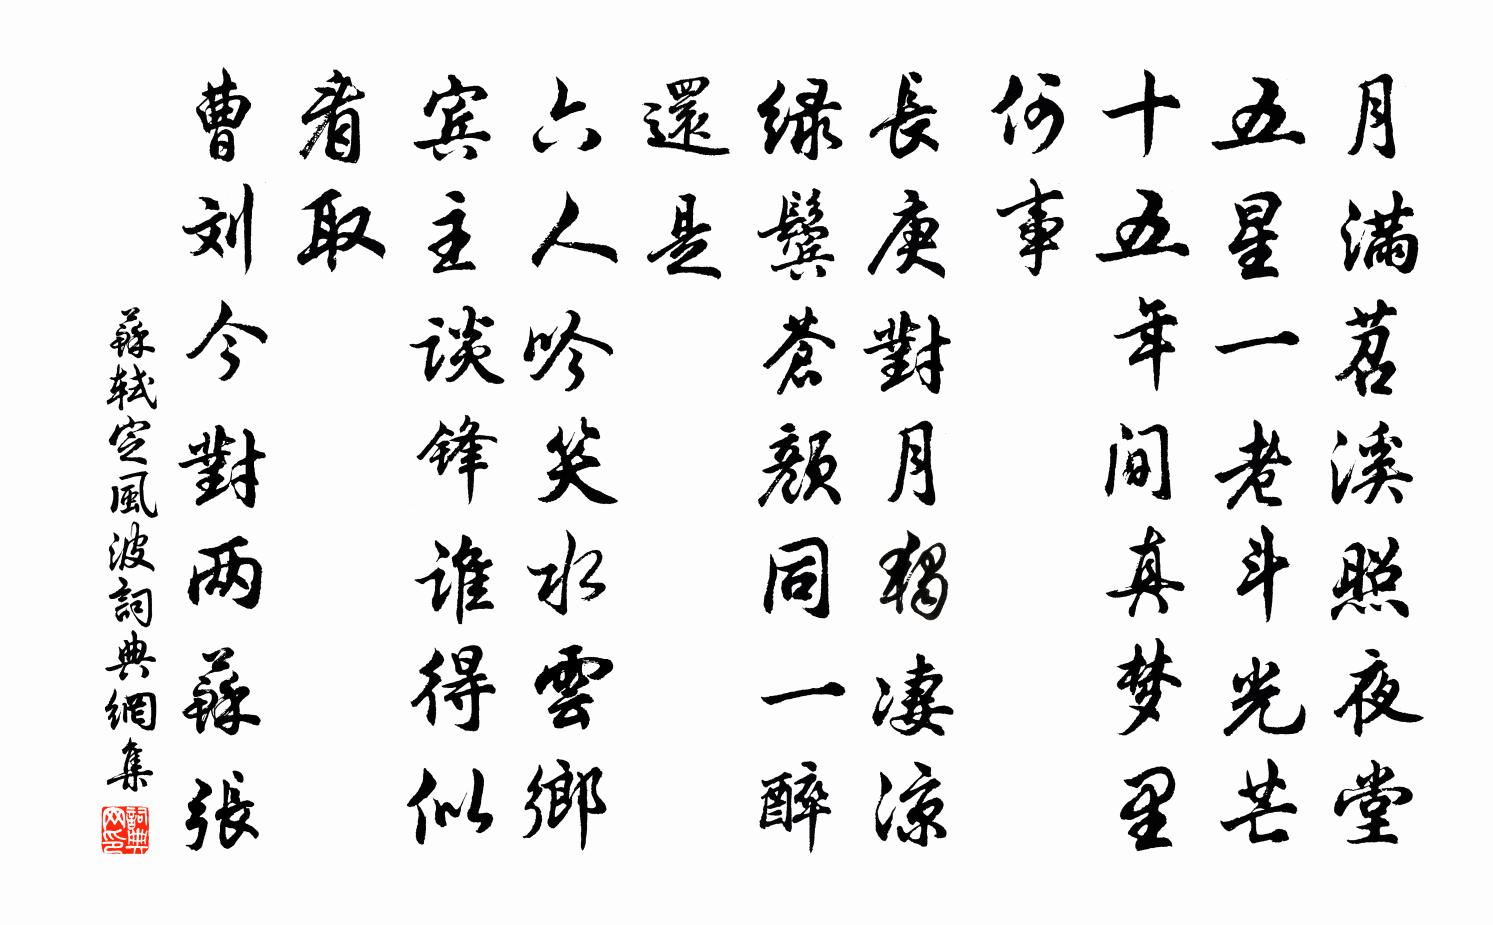 月滿苕溪照夜堂
五星一老斗光芒
十五年间真梦里
何事
長庚對月獨凄涼
绿鬓蒼顔同一醉
還是
六人吟笑水雲鄉
宾主谈锋谁得似
看取
曹刘今對两蘇張
蘇轼定風波詞典網集
詞典网印